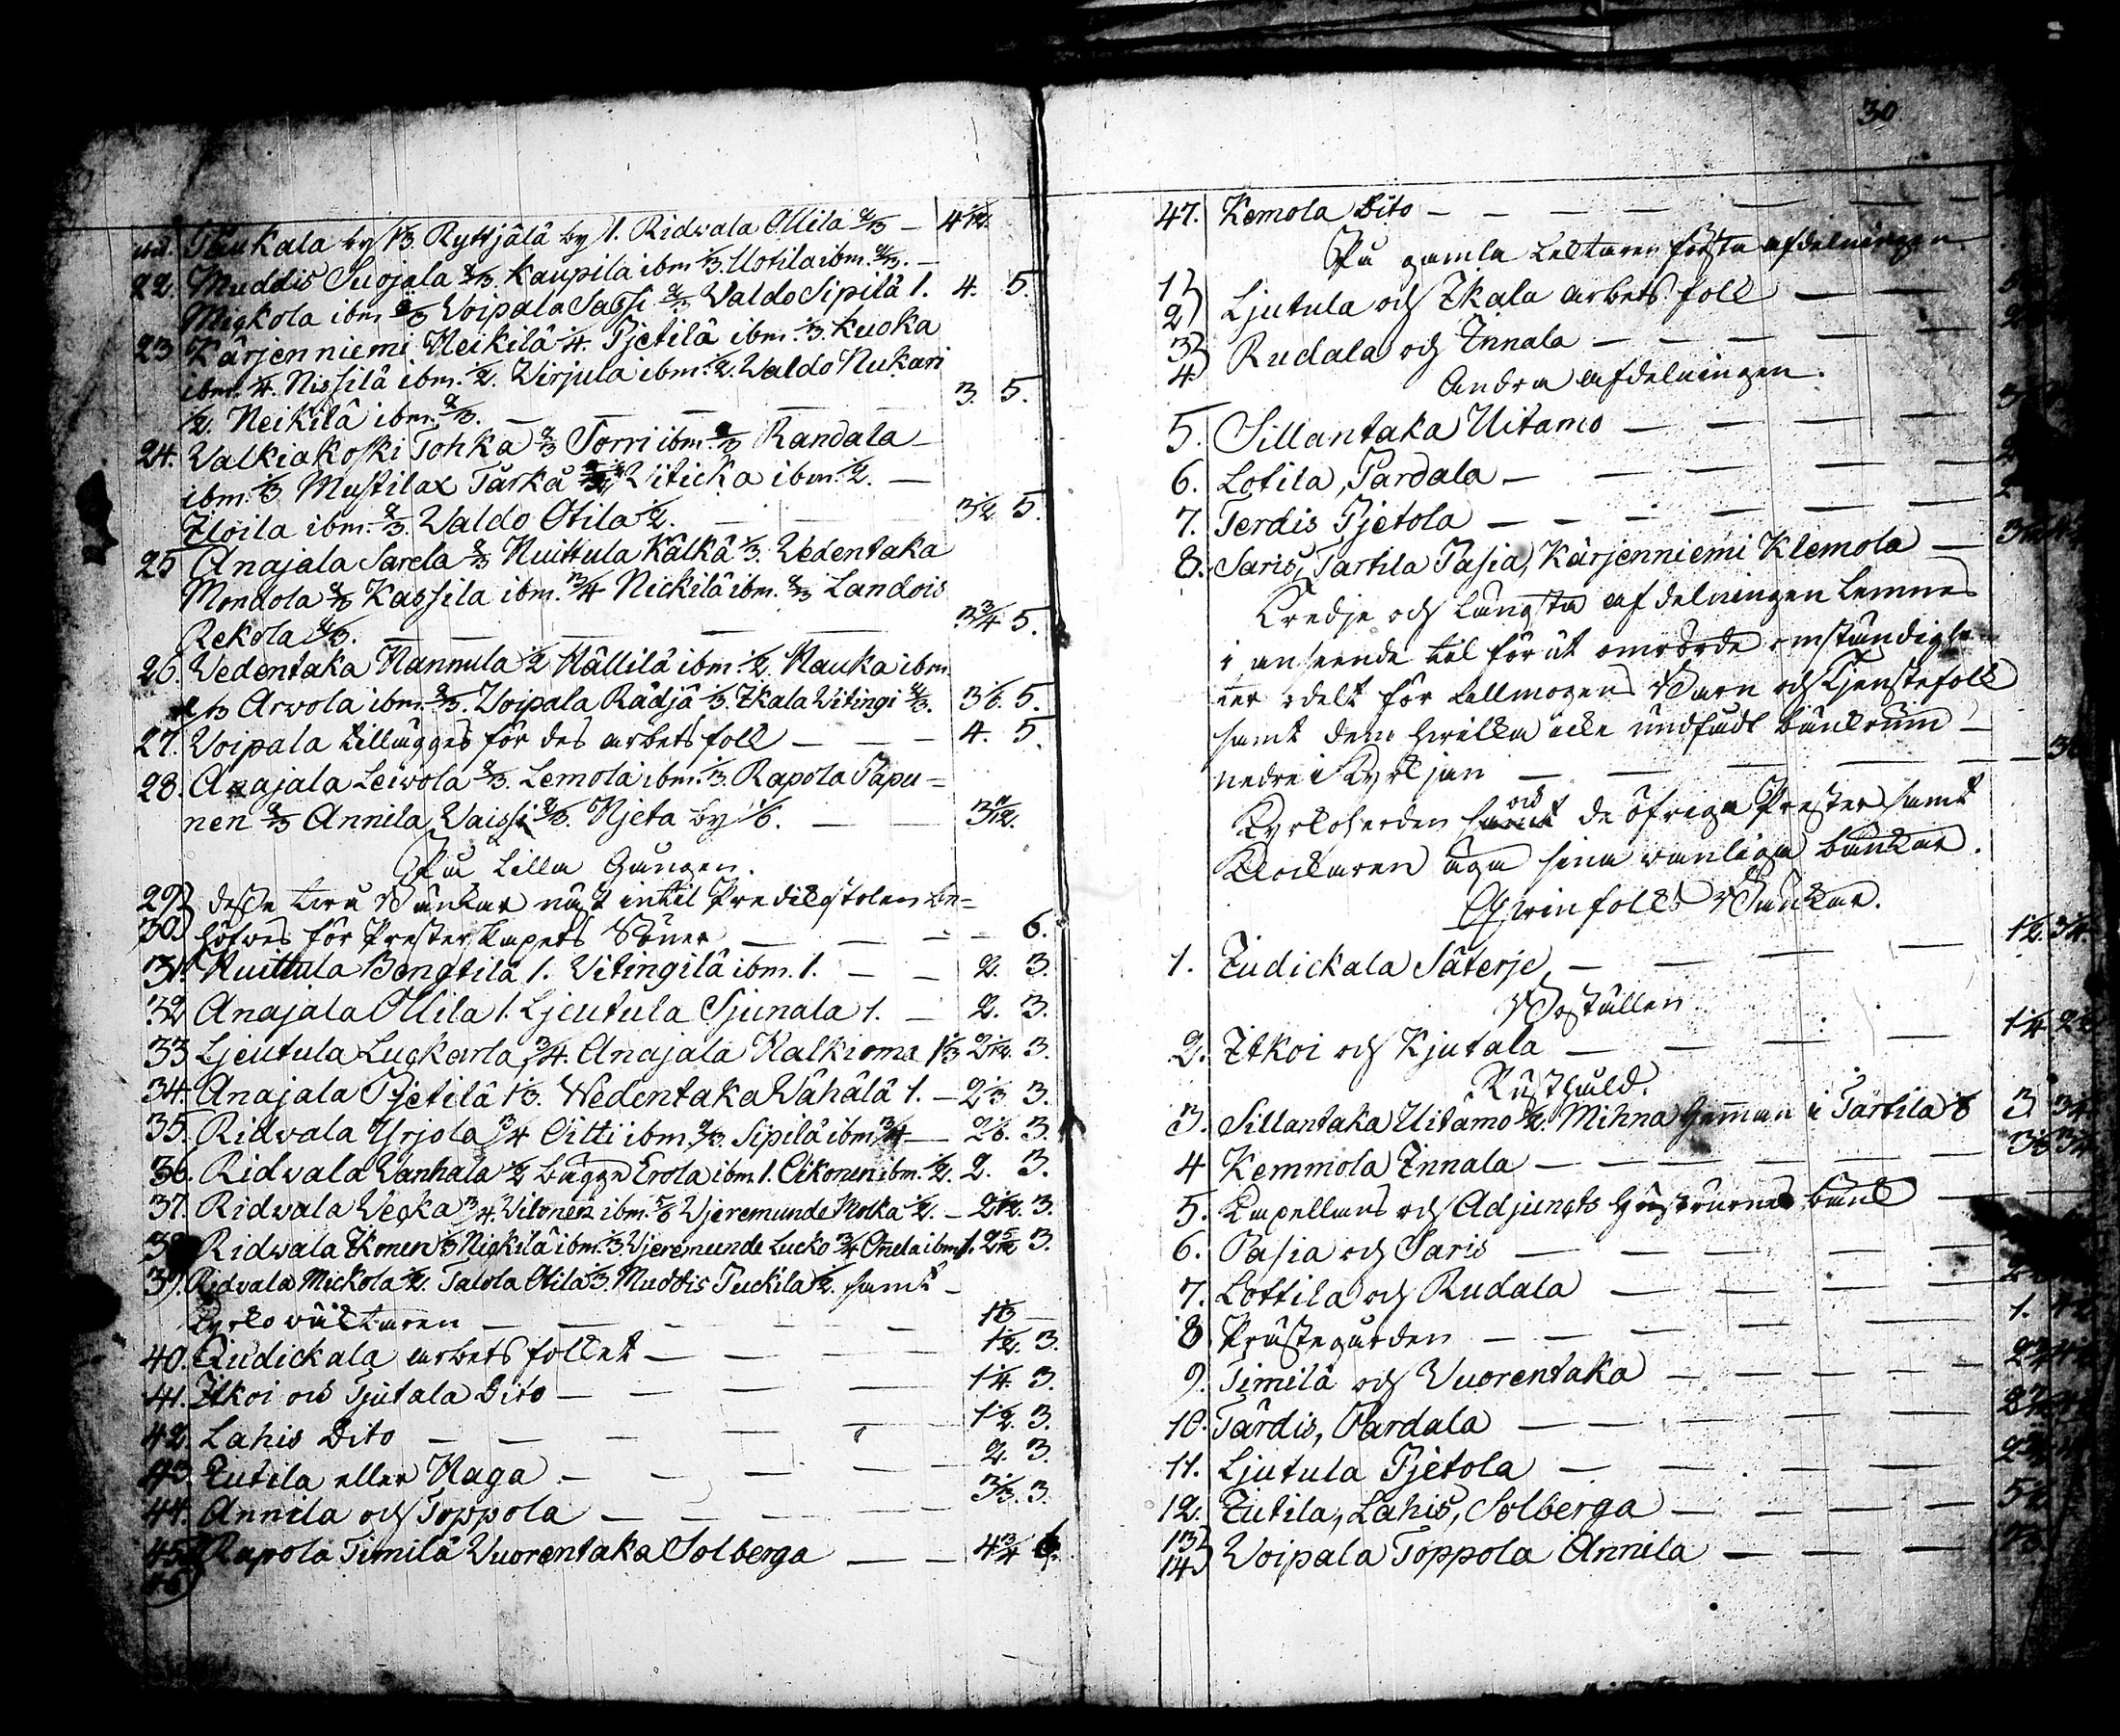 Taukala by 1/3. Ryttjälä by 1. Ridvala Ollila 2/3 — 4 1/12.
22. Muddis Suojala 2/3. Kaupila ibm 1/3. Uotila ibm. 2/3. —
Mickola ibm 2/3 Voipala Sassi 2/3 Waldo Sipilä 1. 4. 5.
23 Kärjenniemi Heikilä 1/4. Pjetilä ibm. 1/3. Kuoka
ibm. 1/4. Nissilä ibm. 1/2. Wirjula ibm. 1/2. Waldo Nukari
1/2. Heikilä ibm. 2/3. — — — — 3. 5.
24. Walkiakoski Tohka 2/3 Torri ibm. 2/3 Randala —
ibm. 1/3. Mustilax Tarka Viticka ibm. 1/2. —
Iloila ibm. 2/3. Waldo Otila 1/2. — — — 3 1/2 5.
25 Anajala Sarela 2/3 Huittula Kälkä 1/3. Wedentaka
Mondola 2/3 Kassila ibm. 3/4 Nickilä ibm. 2/3 Landois
Rekola 2/3. — — — — — 3 3/4 5.
26. Wedentaka Hannula 1/2 Hällilä ibm. 1/2. Hauka ibm.
2/3 Arvola ibm. 2/3. Voipala Rädjä 1/3. Ikala Witingi 2/3. 3 1/6. 5.
27. Voipala tillägges för des arbetsfolk — — — 4. 5.
28. Anajala Leivola 2/3. Lemola ibm. 1/3. Rapola Papu=
nen 2/3 Annila Vaissi 2/3. Hjeta by 1/6. — — 3 1/12.
På Lilla Gången.
29) desse twå Bänkar näst intil Predikstolen be=
30) höfwes för Presterskapets Söner — — — — 6.
31. Huittula Bengtilä 1. Vitingilä ibm. 1. — — 2. 3.
32 Anajala Ollila 1. Ljeutula Sjunala 1. — 2. 3.
33 Ljeutula Luckarla 3/4. Anajala Kalkioma 1 1/3 2 1/12. 3.
34. Anajala Pjetilä 1 1/3. Wedentaka Wähälä 1. — 2 1/3 3.
35. Ridvala Yrjola 3/4 Oitti ibm. 2/3. Sipilä ibm. 3/4 — 2 1/6. 3.
36. Ridvala Wanhala 1/2 bägge Erola ibm. 1. Oikonen ibm. 1/2. 2. 3.
37. Ridvala Wecka 3/4. Wilonen ibm. 5/6 Wjeremunde Molka 1/2. — 2 1/12. 3.
38 Ridvala Ikonen 1/3 Nickilä ibm. 1/3. Wjeremunde Lucko 3/4 Onela ibm. 1. 2 5/12 3.
39. Ridvala Mickola 1/2. Talola Otila 1/3. Muddis Tuckila 1/2. samt —
Kyrkowäktaren — — — — — 1 1/3 —
40. Judickala arbetsfolket — — — — 1 1/2. 3.
41. Itkoi och Tjutala Dito — — — — 1 1/4. 3.
42. Lahis Dito — — — — — 1 1/2. 3.
43. Jutila eller Haga — — — — 2. 3.
44. Annila och Toppola — — — — 3 1/3. 3.
45) Rapola Timilä Wuorentaka Solberga — — 4 3/4 6.
46)
30
47. Kemola Dito — — — — — — —
På gamla Lecktaren första afdelningen
1)
2) Ljutula och Ikala arbets folk — —
3)
4) Rudala och Innala — — — — —
Andra afdelningen.
5. Sillantaka Uitamo — — — —
6. Lotila, Pardala — — — — —
7. Terdis Pjetola — — — — —
8. Saris, Tartila Pasia, Kärjenniemi Klemola —
Tredje och längsta afdelningen lemnas
i anseende til förut omrörde omständighe=
ter odelt för allmogens Barn och Tjenstefolk
samt dem hwilka icke undfådt bänkrum —
nedre i Kyrkjan — — — — — —
Kyrkoherden och de öfriga Prester samt
Klockaren äga sina wanliga bänkar.
Qwinfolks Bänkar.
1. Judickala Säterje, — — — — 1 1/2. 3/4.
Boställen
2. Itkoi och Kjutala — — — — 1 1/4
Rusthåld.
3. Sillantaka Uitamo 1/2. Mihna Hemman i Tartila
4 Kemmola Innala — — — — — —
5. Capellans och Adjuncts Hustrurnes bänk
6. Pasia och Saris — — — — —
7. Lottila och Rudala — — — —
8. Prästegården — — — — — 1.
9. Timilä och Wuorentaka — — — —
10. Tärdis, Pardala — — — — —
11. Ljutula Pjetola — — — — —
12. Jutila, Lahis, Solberga — — — —
13)
14) Voipala Toppola Annila — — —